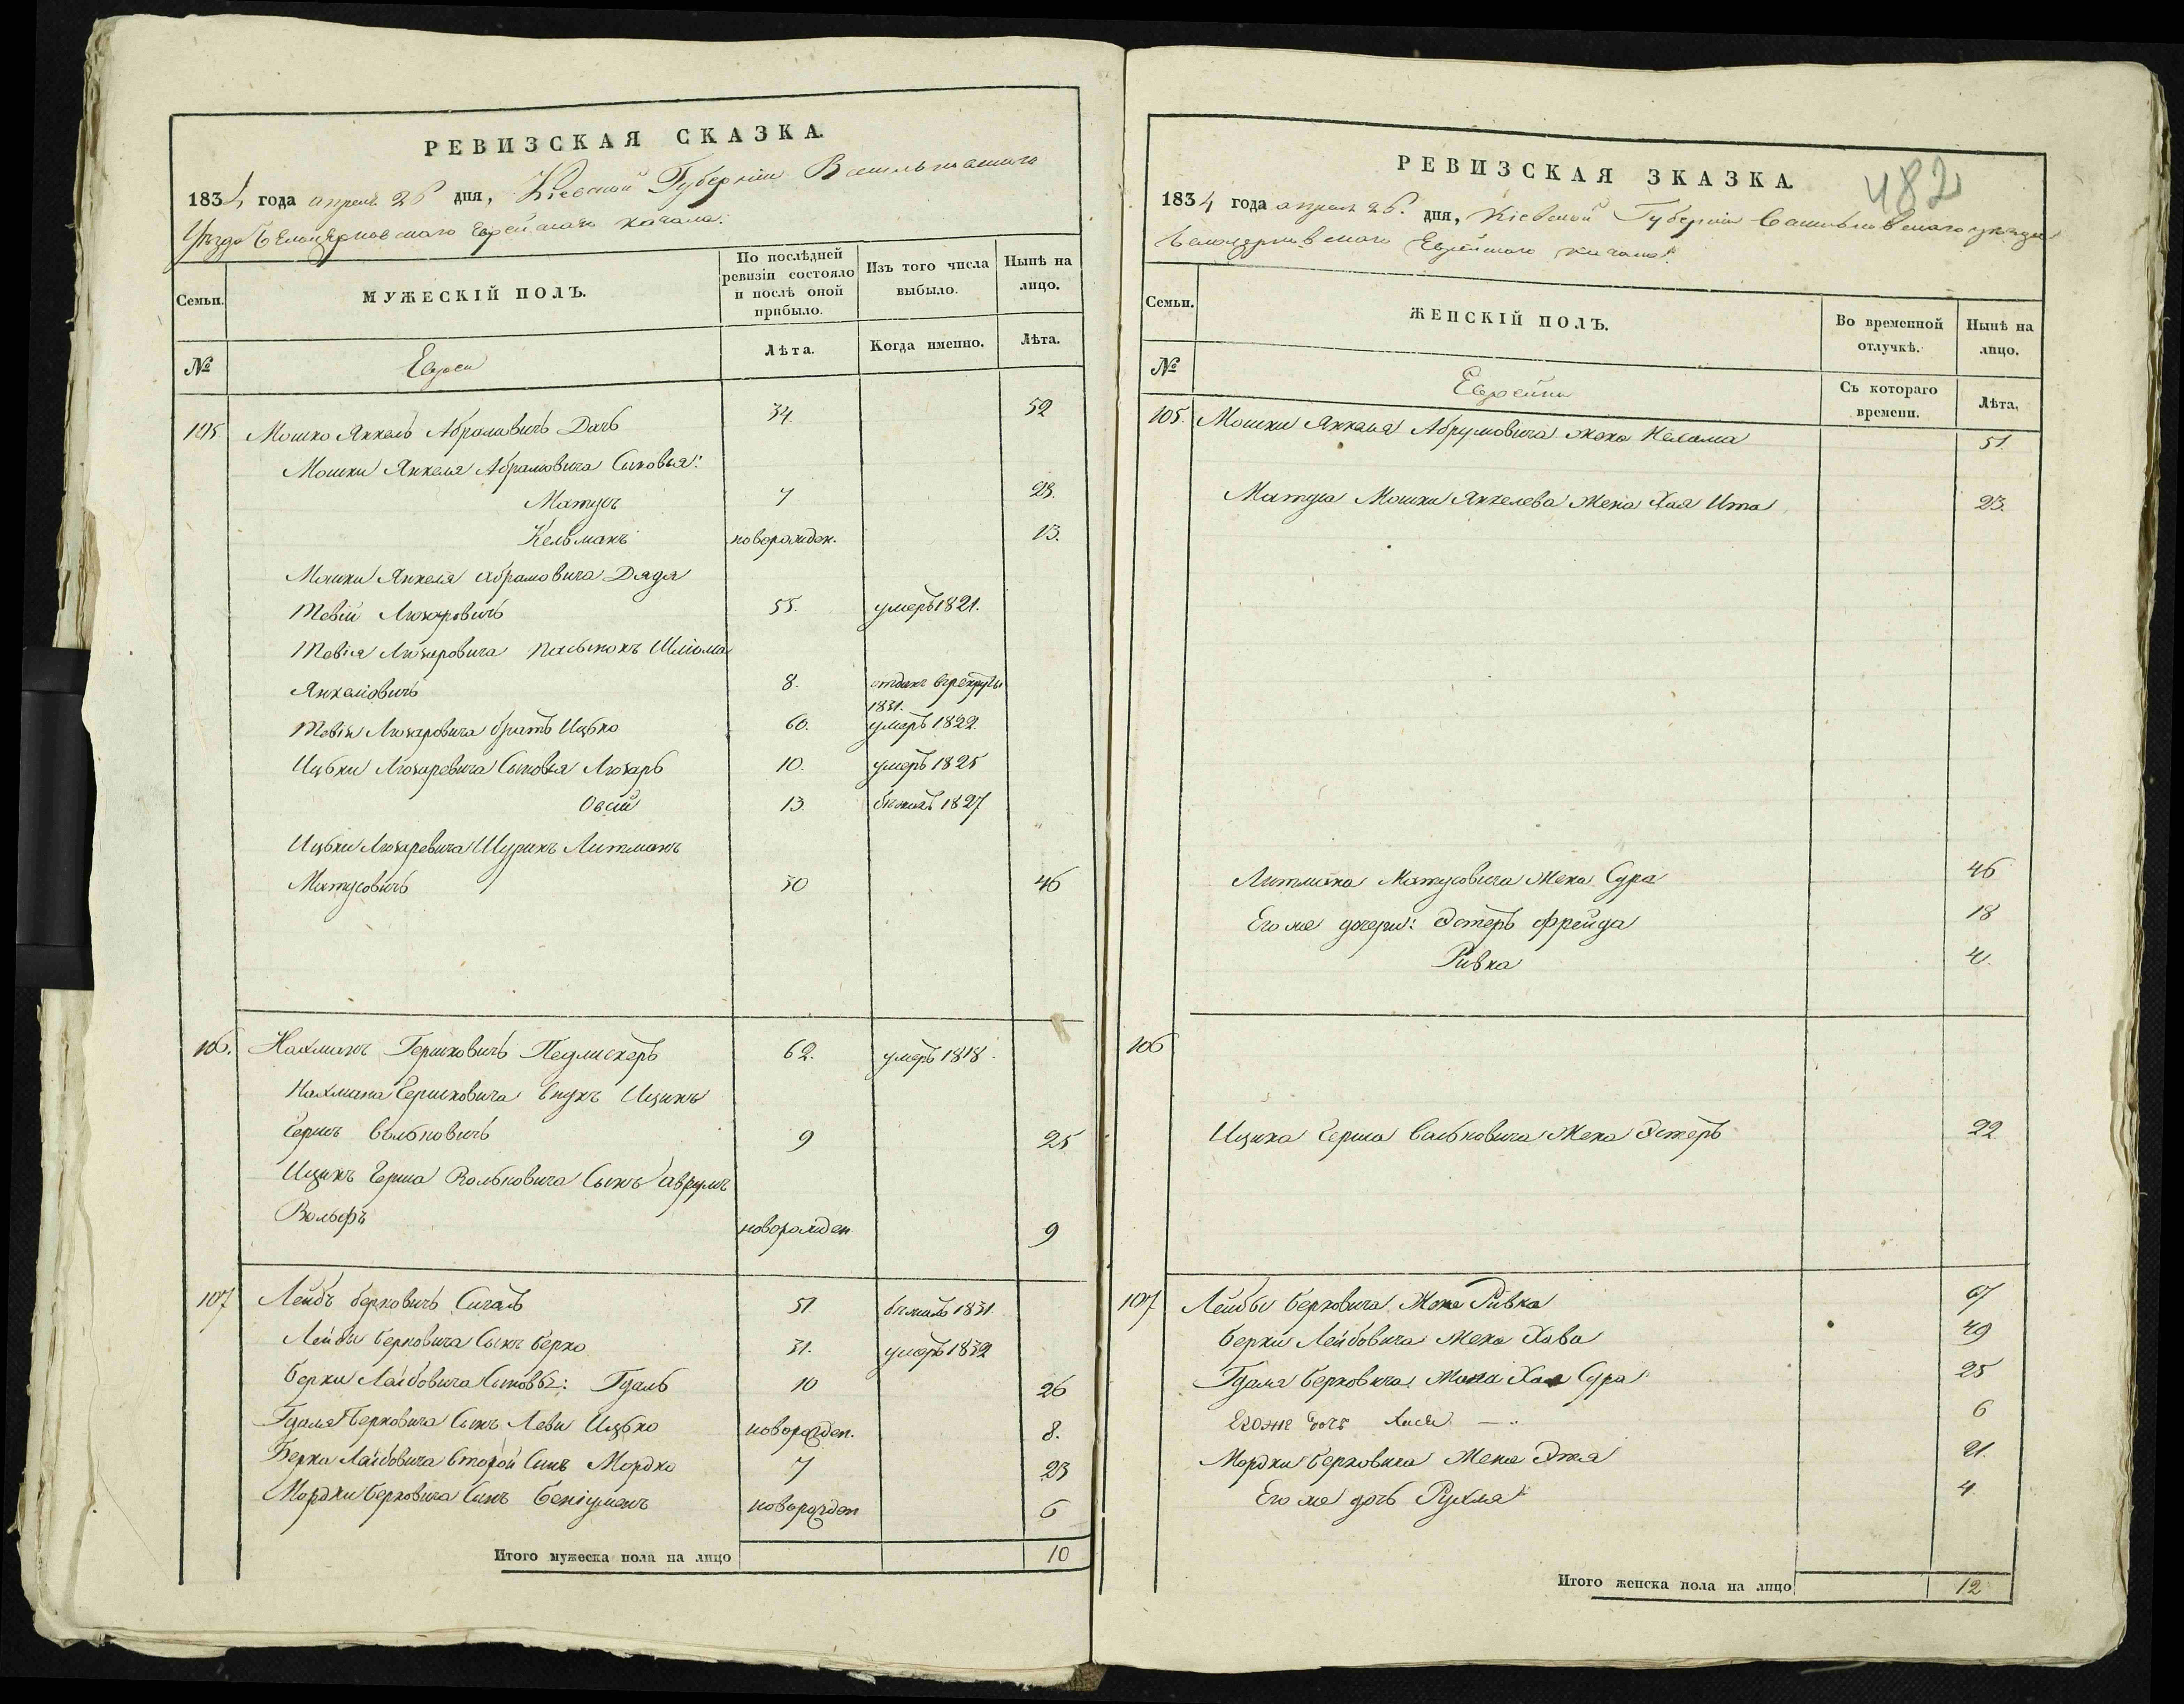 РЕВИЗСКАЯ СКАЗКА.
1834 года апреля 26 дня, Кіевской Губерніи Васильковского
Уезда Белоцерковского Еврейского Кагала:
Семьи.
МУЖЕСКІЙ ПОЛЪ.
По послѣдней ревизіи состояло и послѣ оной прибыло.
Изъ того числа выбыло.
Нынѣ на лицо.
№
Евреи
Лѣта.
Когда именно.
Лѣта.
105 Мошко Янкель Абрамовичъ Дачъ 34. 52
Мошки Янкеля Абрамовича Сыновья:
Матусъ 7 23.
Кельманъ новорожден. 13.
Мошки Янкеля Абрамовича Дядя
Тевій Люзаровичъ 55. умеръ 1821.
Тевія Люзаровича пасынокъ Шліома
Янкеліовичъ 8. отданъ врекруты 1831.
Тевія Люзаровича братъ Ицько 60. умеръ 1822.
Ицьки Люзаревича Сыновья Люзаръ 10. умеръ 1825
Овсій 13. бежалъ 1827
Ицьки Люзаревича Шуринъ Литманъ
Матусовичъ 30 46
106. Нахманъ Гершковичъ Педлискеръ 62. умеръ 1818.
Нахмана Гершковича внукъ Ицикъ
Гершъ Вольковичъ 9 25
Ицикъ Герша Вольковича Сынъ Аврумъ
Вольфъ новорожден 9
107 Лейбъ Берковичъ Сигалъ 51. бежалъ 1831
Лейбы Берковича Сынъ Берко 31. умеръ 1832
Берки Лейбовича Сыновья: Гдаль 10 26
Гдаля Берковича Сынъ Леви Ицько новорожден. 8.
Берка Лейбовича второй Сынъ Мордко 7 23
Мордки Берковича Сынъ Беніуменъ новорожден 6
Итого мужеска пола на лицо 10
482
РЕВИЗСКАЯ ЗКАЗКА.
1834 года апреля 26. дня, Кіевской Губерніи Васильковского уезда
Белоцерковского Еврейского Кагала:
Семьи.
ЖЕНСКІЙ ПОЛЪ.
Во временной отлучкѣ.
Нынѣ на лицо.
№
Еврейки
Съ котораго времени.
Лѣта,
105. Мошки Янкеля Абрумовича жена Нехама 51.
Матуса Мошки Янкелева Жена Хая Ита 23.
Литмана Матусовича Жена Сура 46
Его же дочери: Эстеръ Фрейда 18
Ривка 4.
106
Ицика Герша Вольковича Жена Эстеръ 22
107 Лейбы Берковича Жена Ривка 67
Берки Лейбовича Жена Хава 49
Гдаля Берковича Жена Хая Сура 25
Его же дочь Хася 6
Мордки Берковича Жена Этя 21.
Его же дочь Рухля 4
Итого женска пола на лицо 12